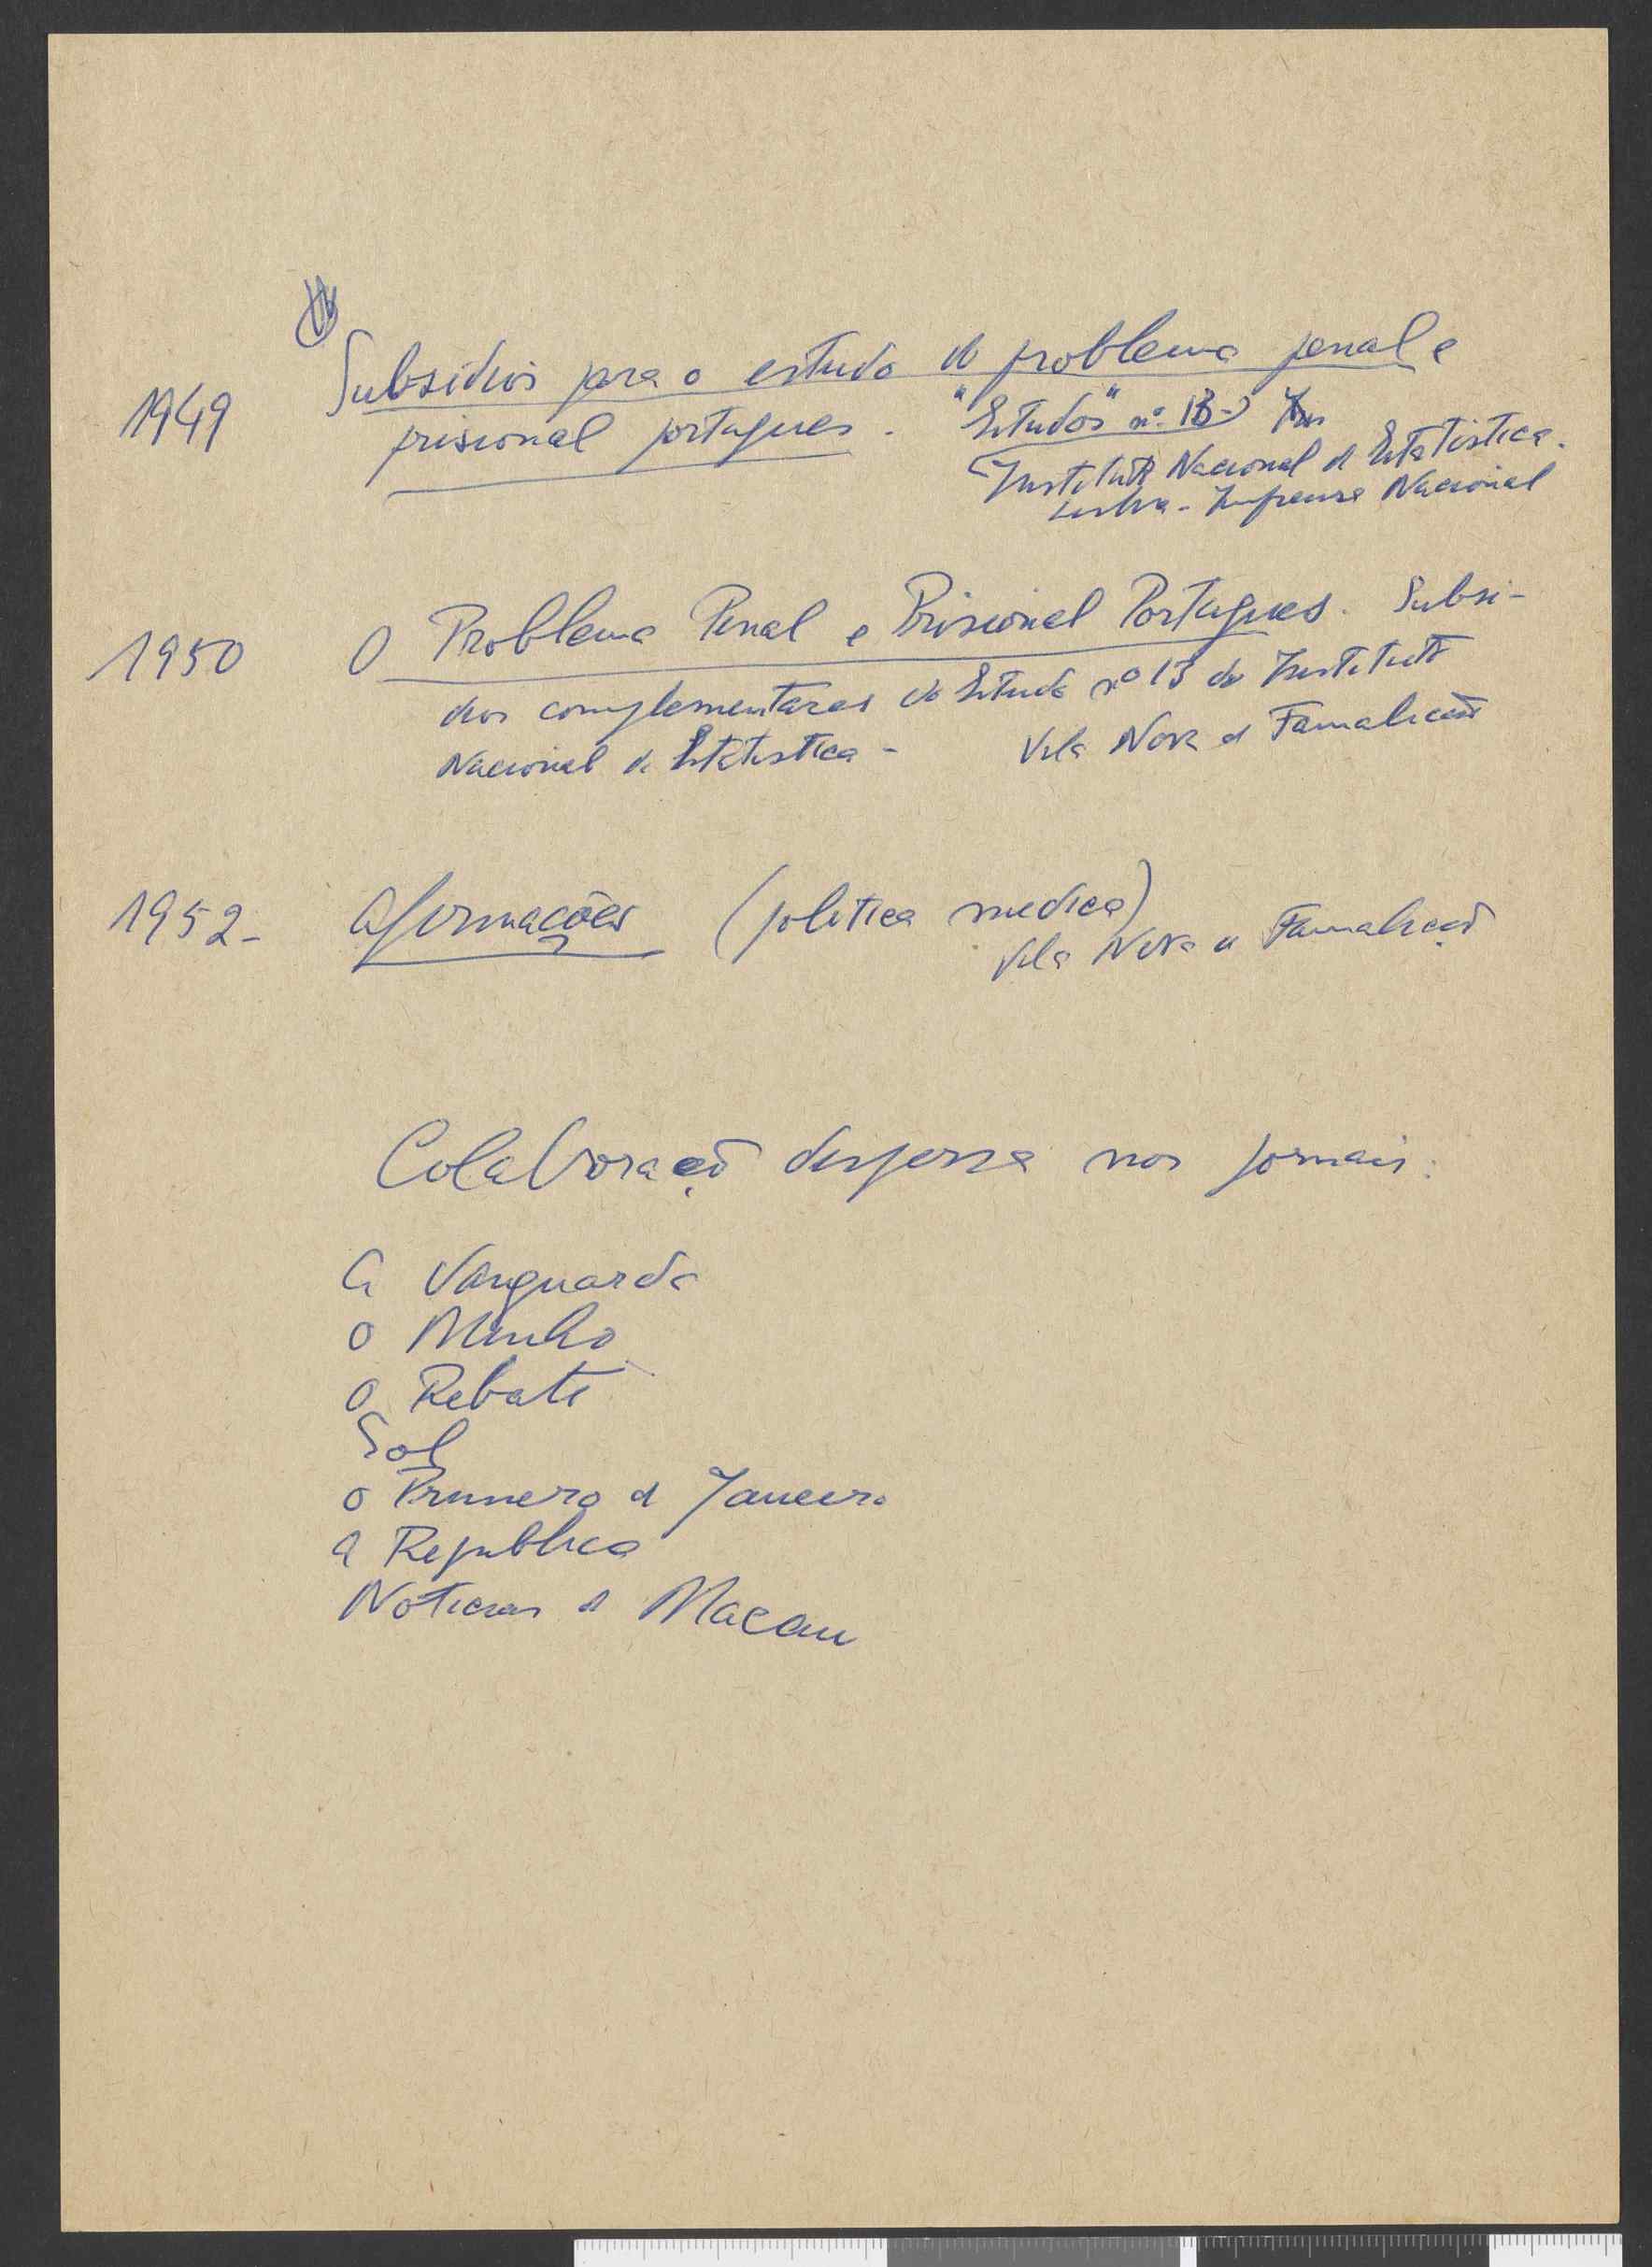 1949 Subsídios para o estudo do problema penal e
prisional portugues. "Estudos" nº 13 -
Instituto Nacional de Estatistica.
Lisboa - Imprensa Nacional
1950 O Problema Penal e Prisional Portugues. Subsi-
dios complementares do Estudo nº 13 do Instituto
Nacional de Estatistica - Vila Nova de Famalicão
1952 - Afirmações (politica medica)
Vila Nova de Famalicão
Colaboração dispersa nos jornais:
A Vanguarda
O Minho
O Rebate
Sol
O Primeiro de Janeiro
A Republica
Noticias de Macau